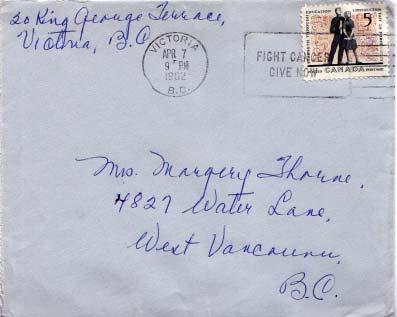 20 King George Terrace,
Victoria, B.C.
VICTORIA
APR 7
9 PM
1962
B.C.
FIGHT CANCER
GIVE NOW
EDUCATION
5
CANADA
Mrs. Margery Thorne,
4827 Water Lane,
West Vancouver,
B.C.